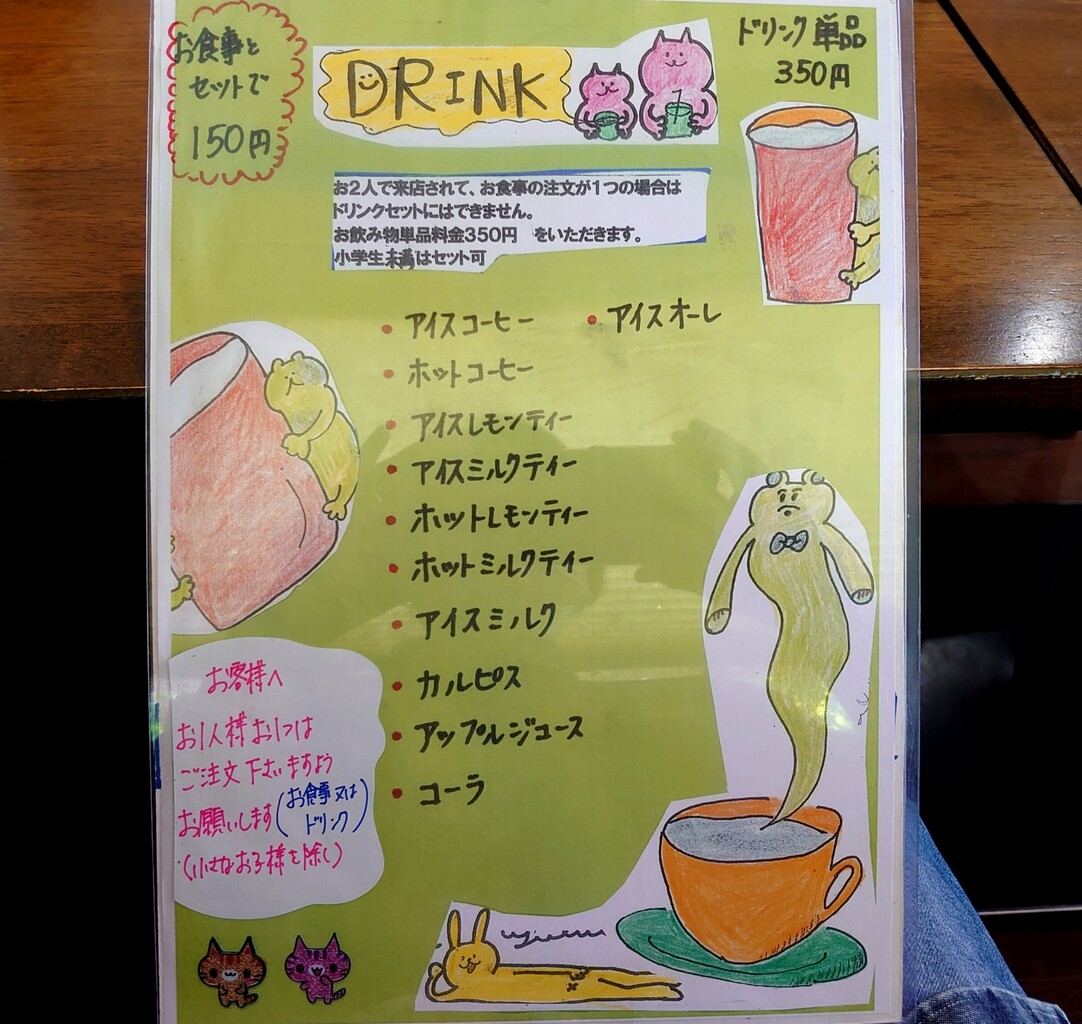 お食事と
セットで
150円
DRINK
ドリンク 単品
350円
お2人で来店されて、お食事の注文が1つの場合は
ドリンクセットにはできません。
お飲み物単品料金350円　をいただきます。
小学生未満はセット可
• アイスコーヒー
• アイスオーレ
• ホットコーヒー
• アイスレモンティー
• アイスミルクティー
• ホットレモンティー
• ホットミルクティー
• アイスミルク
• カルピス
• アップルジュース
• コーラ
お客様へ
お1人様お1つは
ご注文下さいますよう
お願いします(お食事又は
ドリンク)
(小さなお子様を除く)